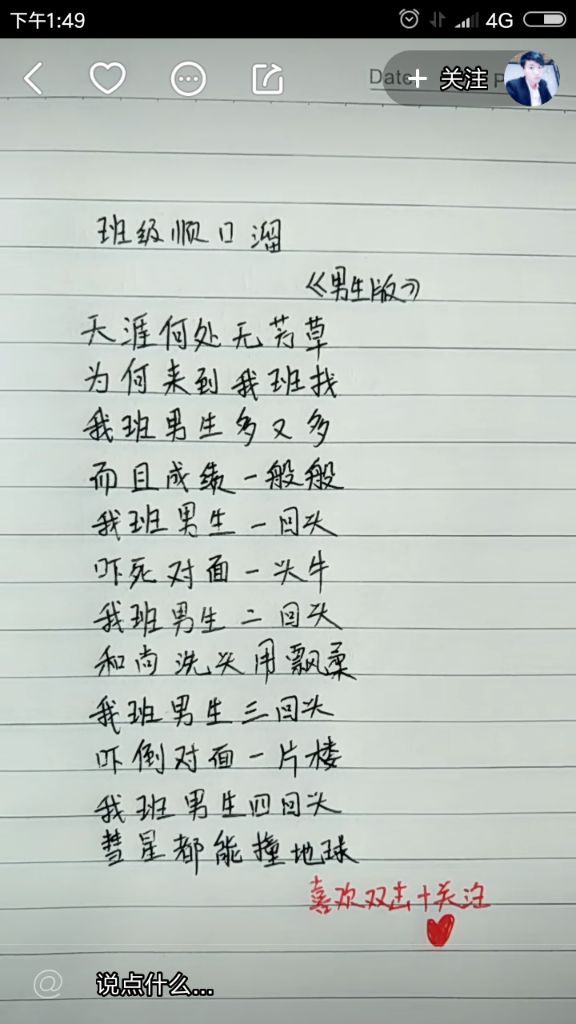 下午1:49
4G
Date
+ 关注
P
班级顺口溜
《男生版》
天涯何处无芳草
为何来到我班找
我班男生多又多
而且成绩一般般
我班男生一回头
吓死对面一头牛
我班男生二回头
和尚洗头用飘柔
我班男生三回头
吓倒对面一片楼
我班男生四回头
彗星都能撞地球
喜欢双击+关注
@
说点什么...